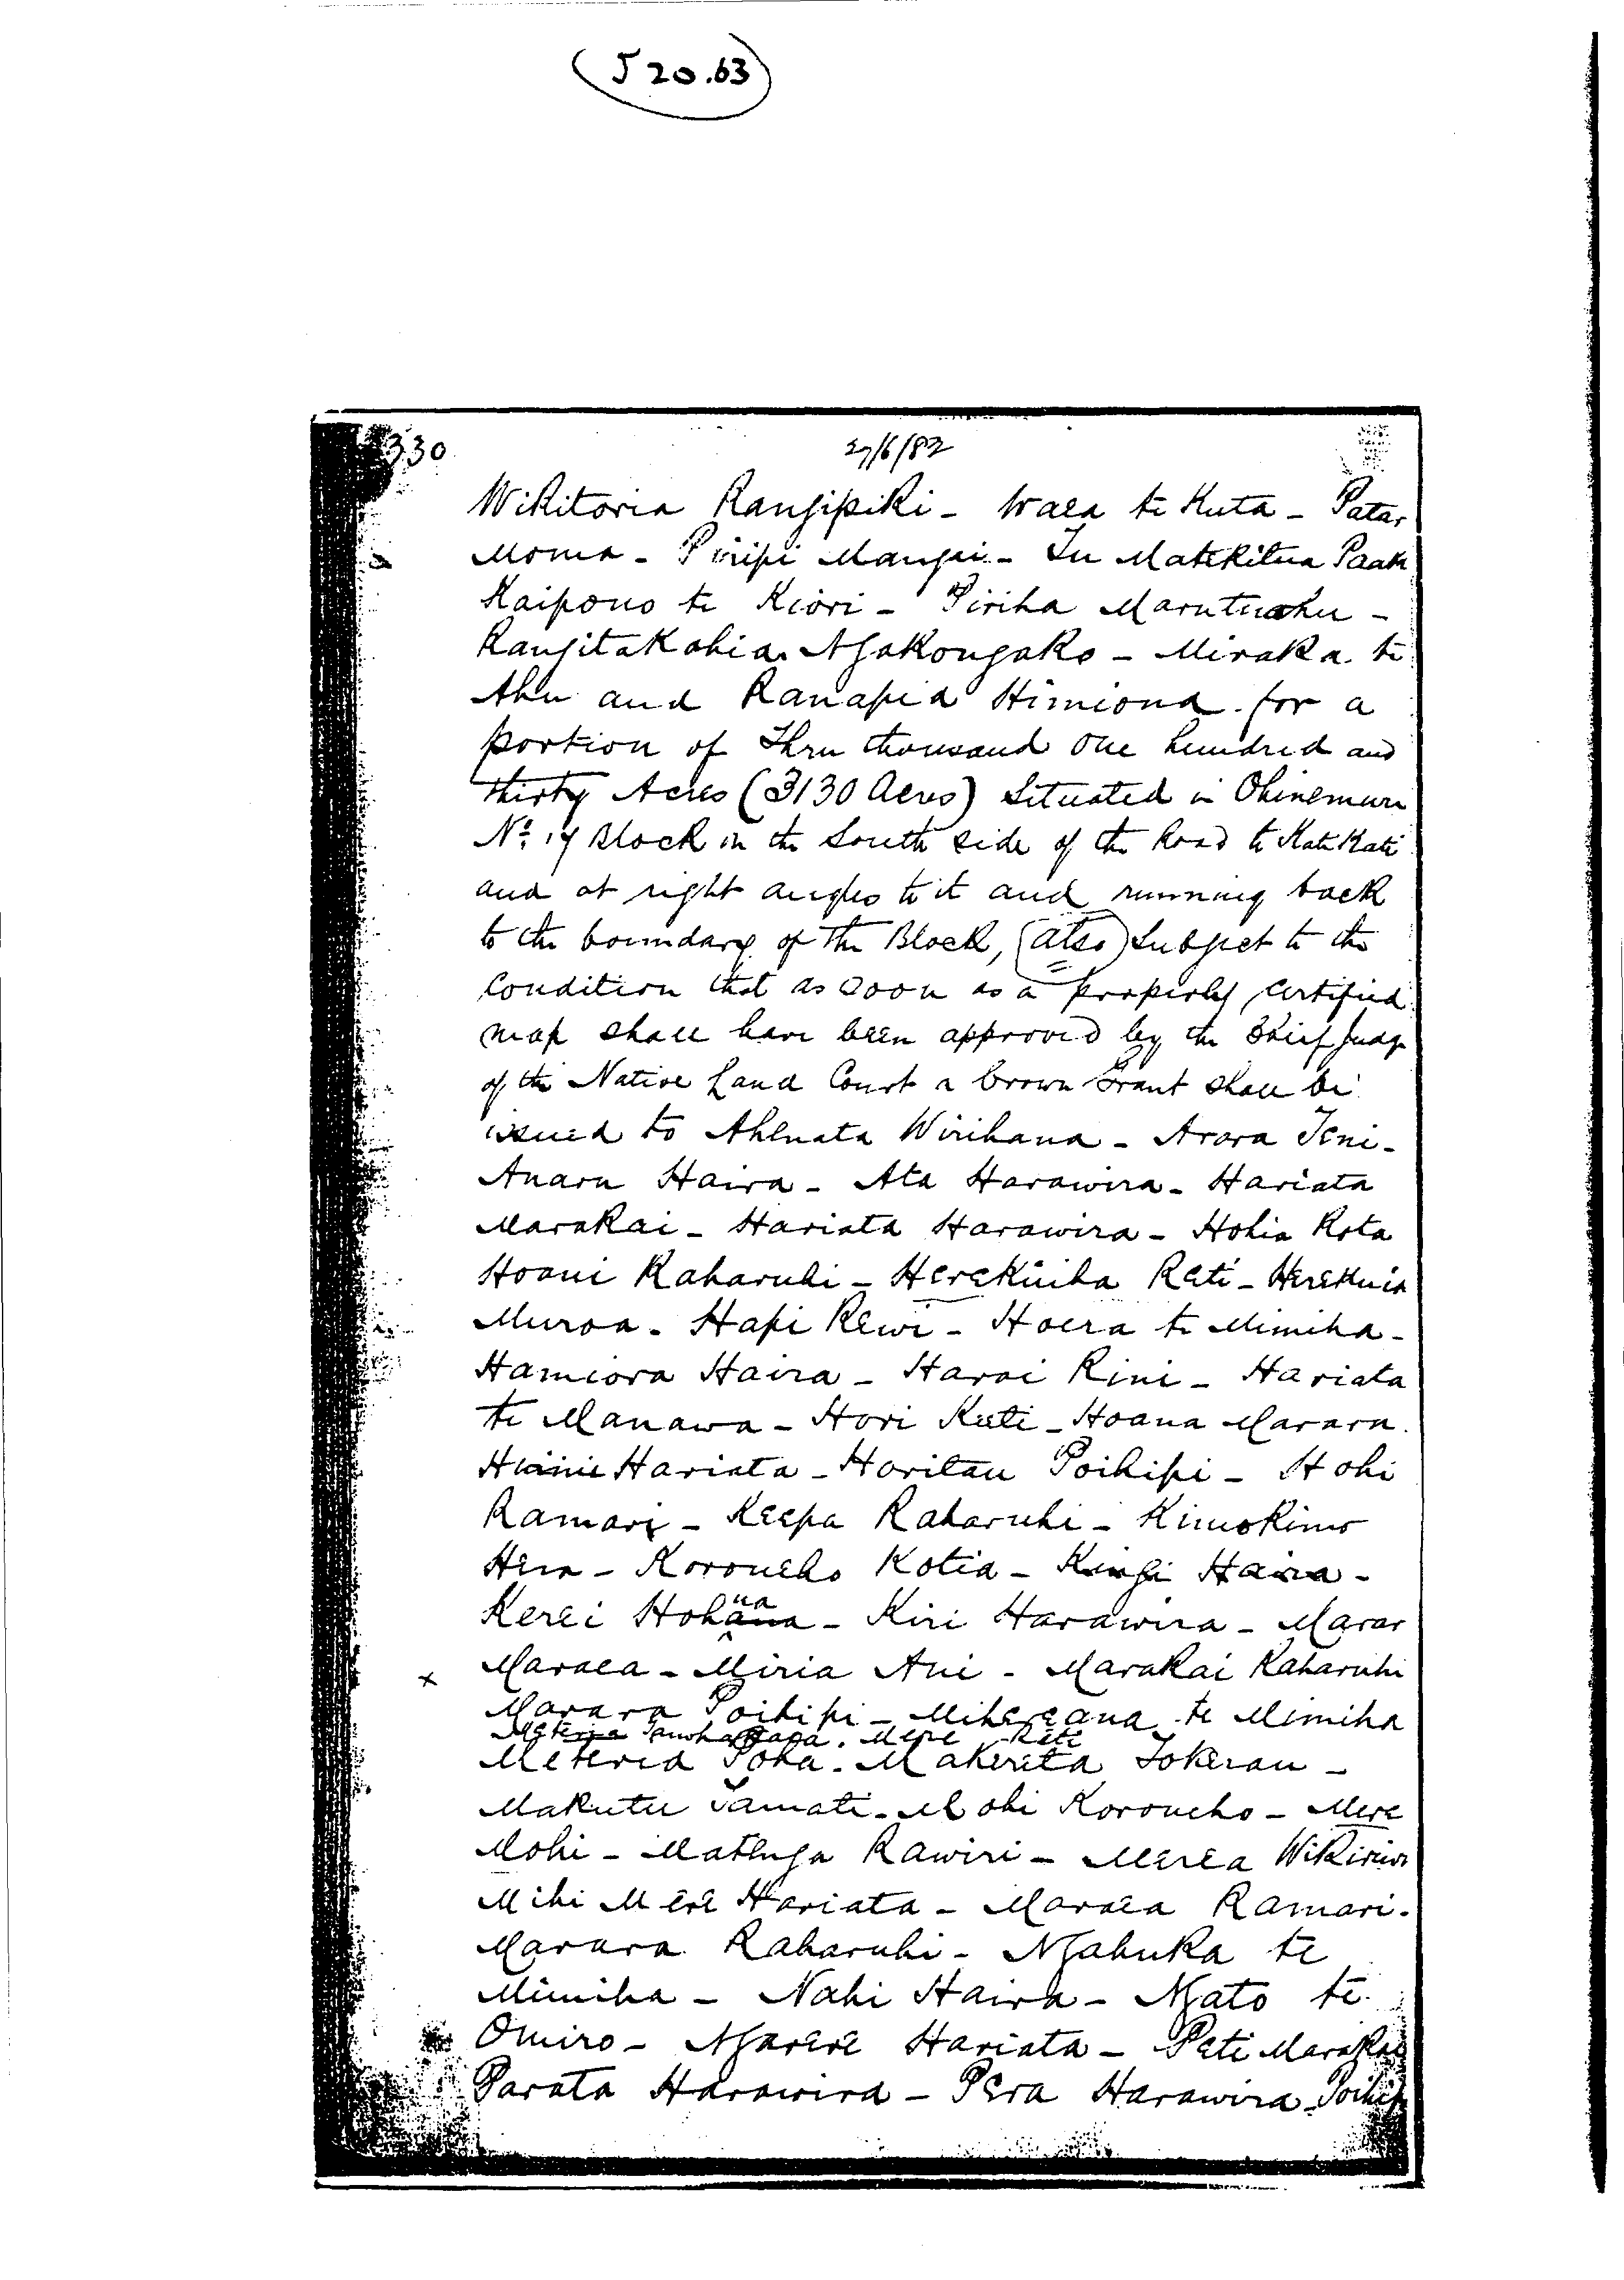 (J 20.63)
330
27/6/82
Wikitoria Rangipiki - Waea te Kuta - Patar
Moma - Piripi Mangai - Tu Matekitua Paaka
Kaipono te Kiori - Piriha Marutuahu -
Rangitakahia Ngakongako - Miraka te
Ahu and Ranapia Himiona for a
portion of Three thousand One hundred and
thirty Acres (3130 Acres) Situated in Ohinemuri
No. 17 Block in the South side of the Road to Kati Kati
and at right angles to it and running back
to the boundary of the Block, (also) Subject to the
Condition that as soon as a properly certified
map shall have been approved by the Chief Judge
of the Native Land Court a Crown Grant shall be
issued to Ahenata Wirihana - Arora Teni -
Anaru Haira - Ata Harawira - Hariata
Marakai - Hariata Harawira - Hohia Rota
Hoani Raharuhi - Herekiuha Reti - Herekuia
Muroa - Hapi Rewi - Hoera te Mimiha -
Hamiora Haira - Harai Rini - Hariata
te Manawa - Hori Keeti - Hoana Marara
Hariata - Horitau Poihipi - Hohi
Ramari - Keepa Raharuhi - Kimokimo
Hera - Koroneho Kotia - Kingi Haira -
Kerei Hohaua - Kiri Harawira - Marar
x Maraea - Miria Ani - Marakai Raharuhi
Marara Poihipi - Mihereana te Mimiha
Mere Reti
Meteria Poha - Makereta Tokerau -
Makutu Tamati - Mohi Koroneho - Mere
Mohi - Matenga Rawiri - Merea Wikiriwi
Mihi Mere Hariata - Maraea Ramari -
Marara Raharuhi - Ngahuka te
Mimiha - Nahi Haira - Ngato te
Omiro - Ngarere Hariata - Peti Marakai
Parata Harawira - Pera Harawira - Poihip